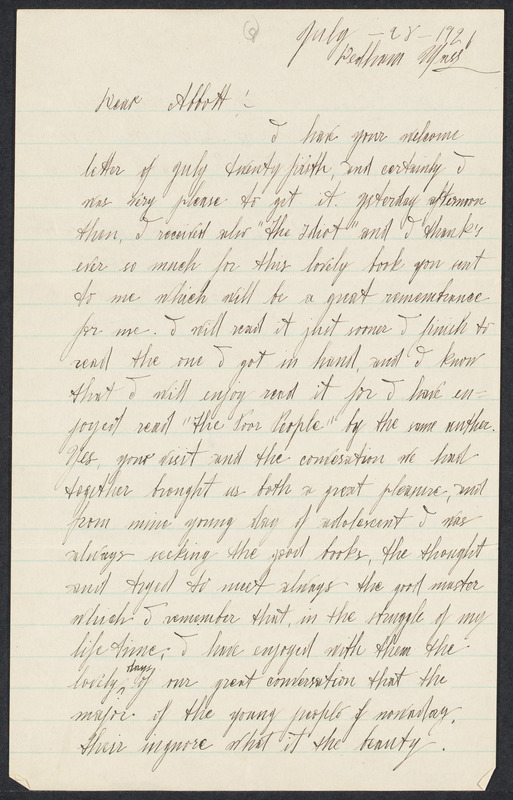 July - 28 - 1921
Dedham Mass
Dear Abbott :-
I have your welcome
letter of July twenty fifth, and certainly I
was very please to get it. Ysterday afternoon
then, I received also "the Idiot" and I thanks
ever so much for this lovely book you sent
to me which will be a great remembrance
for me. I will read it just sooner I finish to
read the one I got in hand, and I know
that I will enjoy read it for I have en=
joyed read "the Poor People" by the same auther.
Yes, your visit and the conversation we had
together brought us both a great pleasure and
from mine young day of adolescent I was
always seeking the good books, the thought
and tryed to meet always the good master
which I remember that, in the struggle of my
life time; I have enjoyed with them the
lovely days of our great conversation that the
major of the young people of nowaday,
their ingnore what it the beauty.